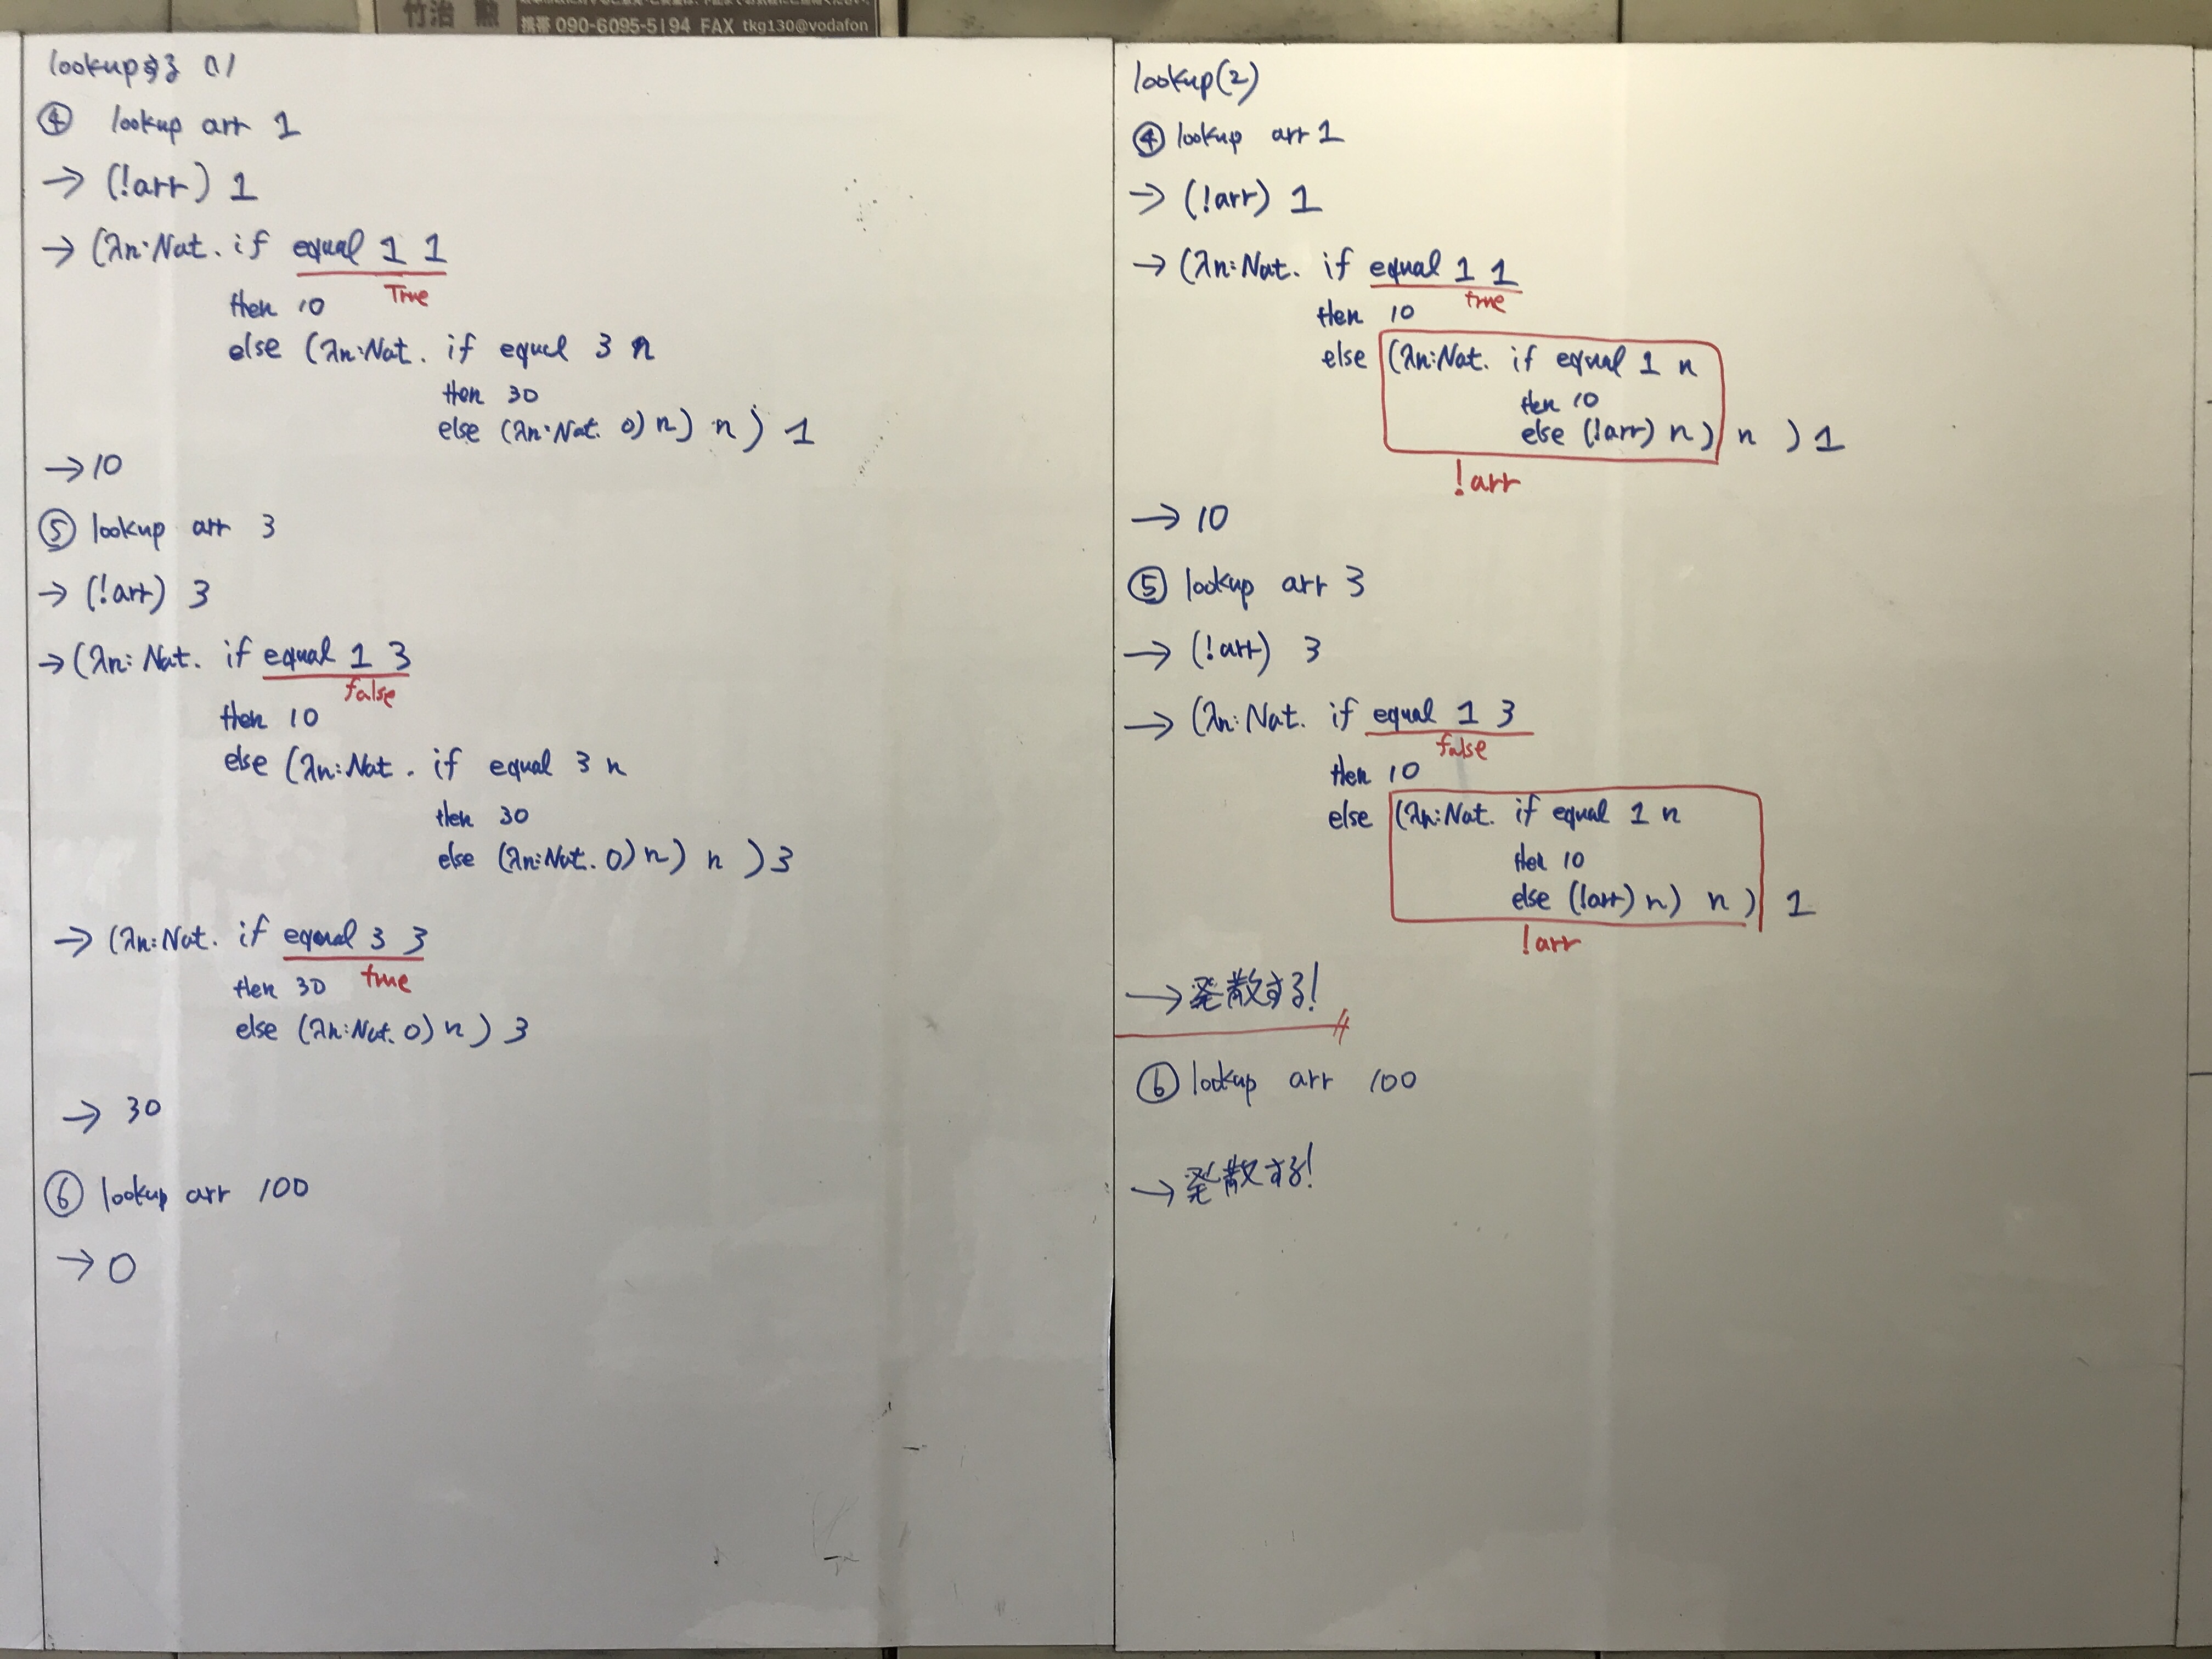 竹治 勲
携帯 090-6095-5194 FAX tkg130@vodafon
lookupする 01
④ lookup arr 1
→ (!arr) 1
→ (λn:Nat. if equal 1 1
True
then 10
else (λn:Nat. if equal 3 n
then 30
else (λn:Nat. 0) n) n ) 1
→ 10
⑤ lookup arr 3
→ (!arr) 3
→ (λn:Nat. if equal 1 3
false
then 10
else (λn:Nat. if equal 3 n
then 30
else (λn:Nat. 0) n) n ) 3
→ (λn:Nat. if equal 3 3
true
then 30
else (λn:Nat. 0) n ) 3
→ 30
⑥ lookup arr 100
→ 0
lookup(2)
④ lookup arr 1
→ (!arr) 1
→ (λn:Nat. if equal 1 1
true
then 10
else (λn:Nat. if equal 1 n
then 10
else (!arr) n ) n ) 1
!arr
→ 10
⑤ lookup arr 3
→ (!arr) 3
→ (λn:Nat. if equal 1 3
false
then 10
else (λn:Nat. if equal 1 n
then 10
else (!arr) n) n ) 1
!arr
→ 発散する!
⑥ lookup arr 100
→ 発散する!